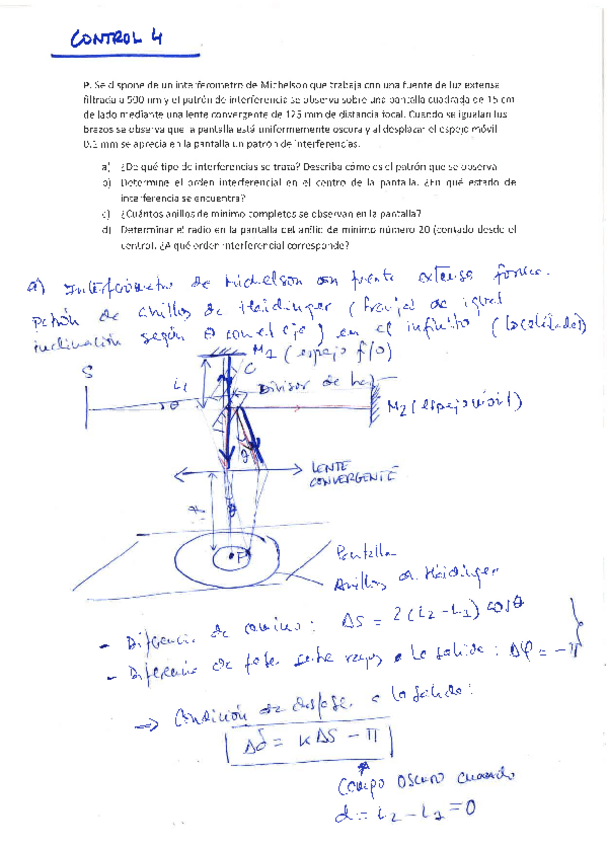 CONTROL 4
P. Se dispone de un interferometro de Michelson que trabaja con una fuente de luz extensa
filtrada a 500 nm y el patrón de interferencia se observa sobre una pantalla cuadrada de 15 cm
de lado mediante una lente convergente de 125 mm de distancia focal. Cuando se igualan los
brazos se observa que la pantalla está uniformemente oscura y al desplazar el espejo móvil
0.1 mm se aprecia en la pantalla un patrón de interferencias.
a) ¿De qué tipo de interferencias se trata? Describa cómo es el patrón que se observa
b) Determine el orden interferencial en el centro de la pantalla. ¿En qué estado de
interferencia se encuentra?
c) ¿Cuántos anillos de mínimo completos se observan en la pantalla?
d) Determinar el radio en la pantalla del anillo de mínimo número 20 (contado desde el
central. ¿A qué orden interferencial corresponde?
a) Interferómetro de Michelson con fuente extensa
Patrón de anillos de Haidinger (franjas de igual
inclinación según θ con el eje) en el infinito (localizadas)
M1 (espejo fijo)
S
L1
C
θ
Divisor de haz
M2 (espejo móvil)
θ
LENTE
CONVERGENTE
θ
P
Pantalla
Anillos de Haidinger
- Diferencia de camino: ΔS = 2(L2-L1) cosθ
- Diferencia de fase entre rayos a la salida: Δφ = -π
→ Condición de desfase a la salida:
Δδ = KΔS - π
CAMPO OSCURO cuando
d = L2 - L1 = 0